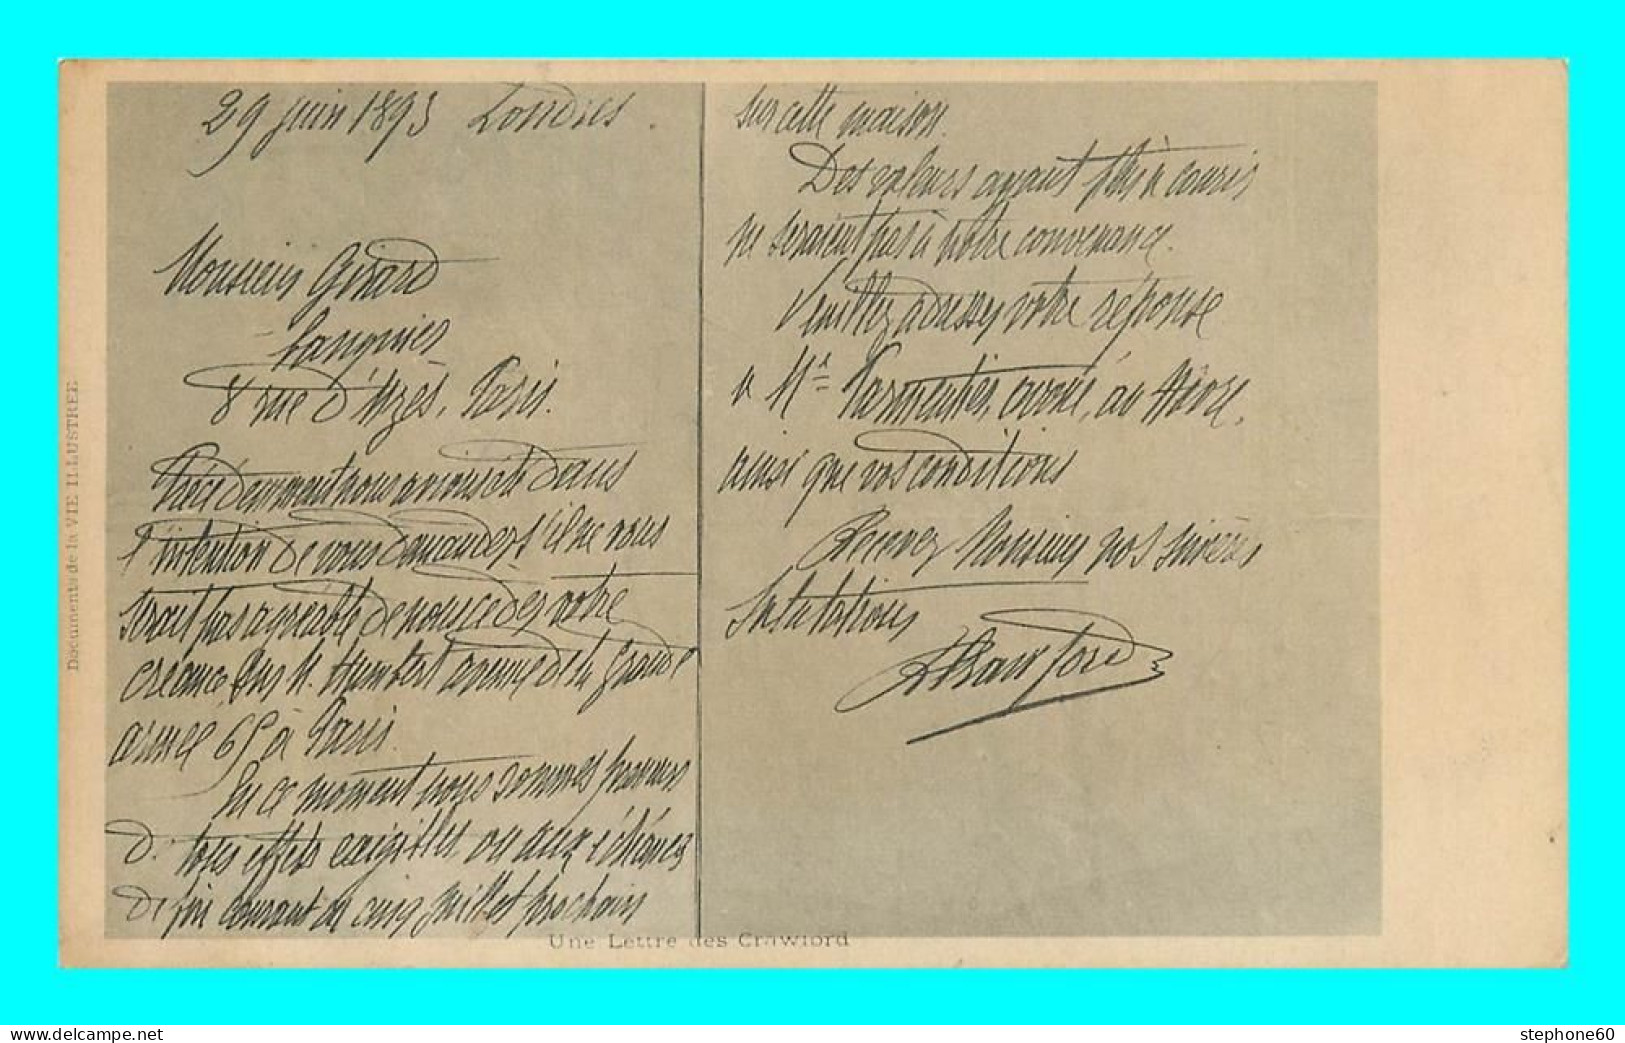 29 juin 1893 Londres.
Monsieur Girard
banquier
8 rue d'Uzès, Paris.
Précédemment nous avions été dans
l'intention de vous demander s'il ne vous
serait pas agréable de nous céder votre
créance sur M. Humbert avenue de la grande
armée 65 à Paris.
En ce moment nous sommes preneurs
de tous effets exigibles ou aux échéances
de fin courant ou cinq juillet prochain
sur cette maison.
Des valeurs ayant plus à courir
ne seraient pas à notre convenance.
Veuillez adresser votre réponse
à Mr Parmentier, avoué, au Hâvre,
ainsi que vos conditions
Recevez Monsieur nos sincères
Salutations
Crawford
Une Lettre des Crawford
Documents de la VIE ILLUSTRÉE
stephone60